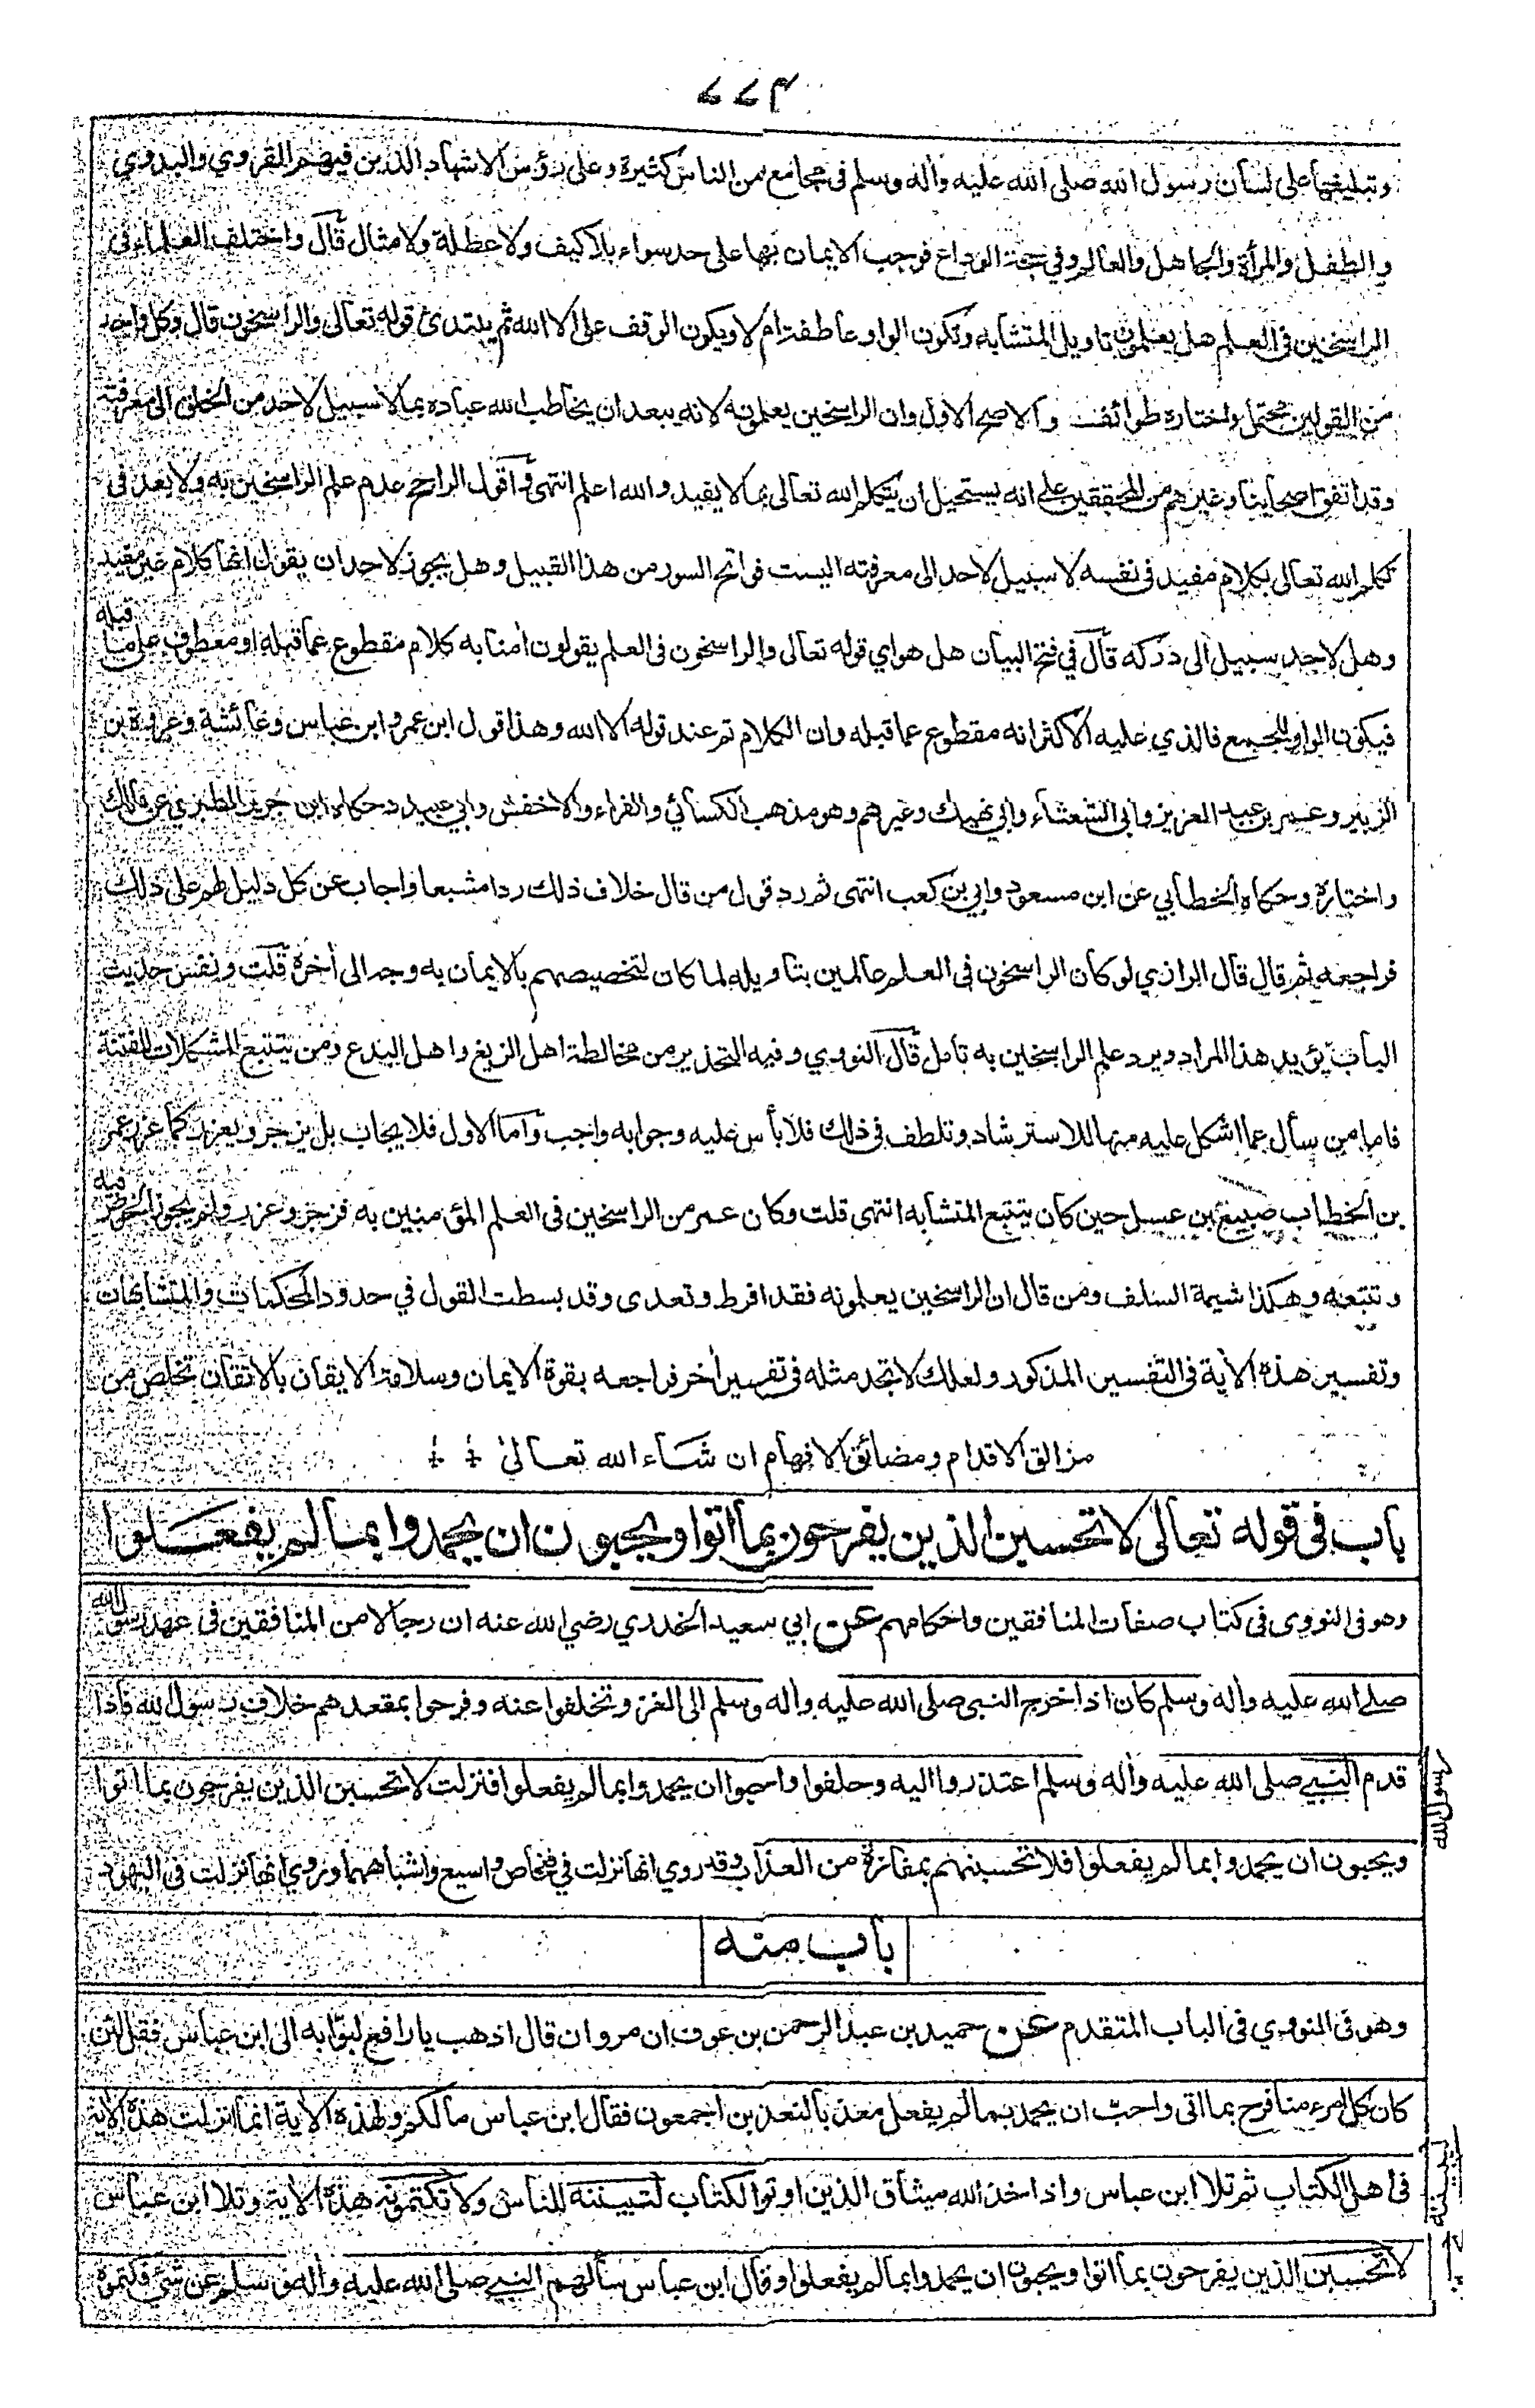 ٧٧٣
وتبليغها على لسان رسول الله صلى الله عليه وأله وسلم في مجامع من الناس كثيرة وعلى رؤس الاشهاد الذين فيهم القروي والبدوي
والطفل والمرأة والجاهل والعالم وفي حجة الوداع فوجب الايمان بها على حد سواء بلا كيف ولا عظلة ولا مثال قال واختلف العلماء في
الراسخين في العلم هل يعلمون تاويل المتشابه وتكون الواو عاطفة ام لا ويكون الوقف على الا الله ثم يبتدئ قوله تعالى والراسخون قال وكل واحد
من القولين محتمل واختاره طوائف والاصح الاول وان الراسخين يعلمونه لانه يبعد ان يخاطب الله عباده بما لا سبيل لاحد من الخلق الى معرفته
وقد اتفق اصحابنا وغيرهم من المحققين على انه يستحيل ان يتكلم الله تعالى بما لا يفيد والله اعلم انتهى واقول الراجح عدم علم الراسخين به ولا بعد في
تكلم الله تعالى بكلام مفيد في نفسه لا سبيل لاحد الى معرفته اليست فواتح السور من هذا القبيل وهل يجوز لاحد ان يقول انها كلام غير مفيد
وهل لاحد سبيل الى دركه قال في فتح البيان هل هو اي قوله تعالى والراسخون في العلم يقولون أمنا به كلام مقطوع عما قبله او معطوف على ما قبله
فيكون الواو للجمع فالذي عليه الاكثر انه مقطوع عما قبله وان الكلام تم عند قوله الا الله وهذا قول ابن عمر وابن عباس وعائشة وعروة بن
الزبير وعمر بن عبد العزيز وابي الشعثاء وابي نهيك وغيرهم وهو مذهب الكسائي والفراء والاخفش وابي عبيد وحكاه ابن جرير الطبري عن مالك
واختاره وحكاه الخطابي عن ابن مسعود وابي بن كعب انتهى ثم رد قول من قال خلاف ذلك ردا مشبعا واجاب عن كل دليل لهم على ذلك
فراجعه ثم قال قال الرازي لو كان الراسخون في العلم عالمين بتاويله لما كان لتخصيصهم بالايمان به وجه الى أخره قلت ونفس حديث
الباب يؤيد هذا المراد ويرد علم الراسخين به تامل قال النووي وفيه التحذير من مخالطة اهل الزيغ واهل البدع ومن يتتبع المشكلات للفتنة
فاما من سأل عما اشكل عليه منها للاسترشاد وتلطف في ذلك فلا بأس عليه وجوابه واجب واما الاول فلا يجاب بل يزجر ويعزر كما عزر عمر
بن الخطاب صبيغ بن عسل حين كان يتتبع المتشابه انتهى قلت وكان عمر من الراسخين في العلم المؤمنين به فزجر وعزر ولم يجوز الخوض فيه
وتتبعه وهكذا شيمة السلف ومن قال ان الراسخين يعلمونه فقد افرط وتعدى وقد بسطت القول في حدود المحكمات والمتشابهات
وتفسير هذه الأية في التفسير المذكور ولعلك لا تجد مثله في تفسير أخر فراجعه بقوة الايمان وسلامة الايقان بالاتقان تخلص من
مزالق الاقدام ومضائق الافهام ان شاء الله تعالى
باب في قوله تعالى لا تحسبن الذين يفرحون بما اتوا ويحبون ان يحمدوا بما لم يفعلوا
وهو في النووي في كتاب صفات المنافقين واحكامهم عن ابي سعيد الخدري رضي الله عنه ان رجالا من المنافقين في عهد رسول الله
صلى الله عليه وأله وسلم كان اذا خرج النبي صلى الله عليه وأله وسلم الى الغزو تخلفوا عنه وفرحوا بمقعدهم خلاف رسول الله فاذا
قدم النبي صلى الله عليه وأله وسلم اعتذروا اليه وحلفوا واحبوا ان يحمدوا بما لم يفعلوا فنزلت لا تحسبن الذين يفرحون بما اتوا
رسول الله
ويحبون ان يحمدوا بما لم يفعلوا فلا تحسبنهم بمفازة من العذاب وقد روي انها نزلت في فنحاص واسيع واشباههما وروي انها نزلت في اليهود
باب منه
وهو في النووي في الباب المتقدم عن حميد بن عبد الرحمن بن عوف ان مروان قال اذهب يا رافع لبوابه الى ابن عباس فقل لئن
كان كل امرء منا فرح بما اتى واحب ان يحمد بما لم يفعل معذبا لنعذبن اجمعون فقال ابن عباس ما لكم ولهذه الأية انما انزلت هذه الأية
في اهل الكتاب ثم تلا ابن عباس واذ اخذ الله ميثاق الذين اوتوا الكتاب لتبيننه للناس ولا تكتمونه هذه الأية وتلا ابن عباس
ليبيننه
لا تحسبن الذين يفرحون بما اتوا ويحبون ان يحمدوا بما لم يفعلوا وقال ابن عباس سألهم النبي صلى الله عليه وأله وسلم عن شئ فكتموه